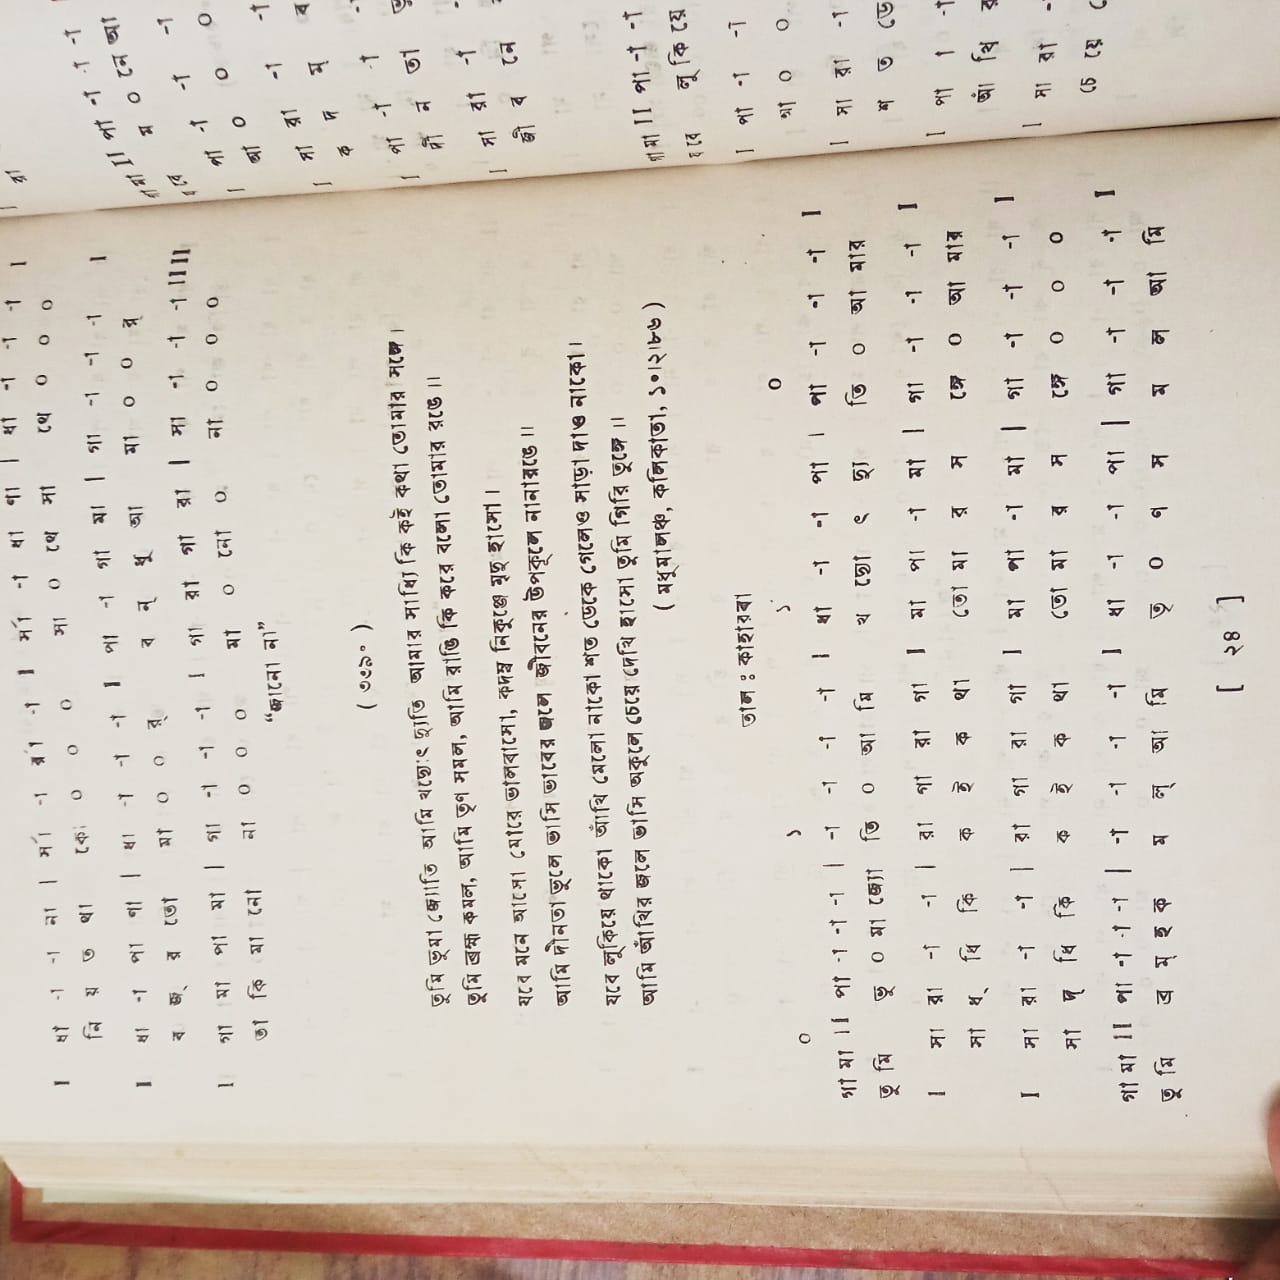 । ধা -া -া না | র্সা -া র্রা -া I র্সা -া ধা ণা | ধা -া -া -া I
নি য় ত থা কো ০ ০ ০ সা ০ থে সা থে ০ ০ ০
I ধা -া পা ণা | ধা -া -া -া I পা -া গা মা | গা -া -া -া I
ব জ্ র তো মা ০ ০ র্ ব ন্ ধু আ মা ০ ০ র্
I গা মা পা মা | গা -া -া -া I গা রা গা রা | সা -া -া -া IIII
তা কি মা নো না ০ ০ ০ মা ০ নো ০ না ০ ০ ০
“জানো না”
( ৩৩৯০ )
তুমি ভূমা জ্যোতি আমি খদ্যোৎ দ্যুতি আমার সাধ্যি কি কই কথা তোমার সঙ্গে।
তুমি ব্রহ্ম কমল, আমি তৃণ সমল, আমি রাঙি কি করে বলো তোমার রঙে॥
যবে মনে আসো মোরে ভালবাসো, কদম্ব নিকুঞ্জে মৃদু হাসো।
আমি দীনতা ভুলে ভাসি ভাবের জলে জীবনের উপকূলে নানারঙে॥
যবে লুকিয়ে থাকো আঁখি মেলো নাকো শত ডেকে গেলেও সাড়া দাও নাকো।
আমি আঁখির জলে ভাসি অকূলে চেয়ে দেখি হাসো তুমি গিরি তুঙ্গে॥
( মধুমালঞ্চ, কলিকাতা, ১০।২।৮৬ )
তাল : কাহারবা
০ ১ ১ ০
গা মা II পা -া -া -া | -া -া -া -া I ধা -া -া পা | পা -া -া -া I
তু মি ভূ ০ মা জ্যো তি ০ আ মি খ দ্যো ৎ দ্যু তি ০ আ মার
I সা রা -া -া | রা গা রা গা I মা পা -া মা | গা -া -া -া I
সা ধ্ ধি কি ক ই ক থা তো মা র স ঙ্গে ০ আ মার
I সা রা -া -া | রা গা রা গা I মা পা -া মা | গা -া -া -া I
সা দ্ ধি কি ক ই ক থা তো মা র স ঙ্গে ০ ০ ০
গা মা II পা -া -া -া | -া -া -া -া I ধা -া -া পা | গা -া -া -া I
তু মি ব্র ম্ হ ক ম ল্ আ মি তৃ ০ ণ স ম ল আ মি
[ ২৪ ]
। রা
গা মা II পা -া -া -া
যবে ম ০ নে আ
। পা -া -া
আ ০ ০ ০
। সা রা -া
ক দ ম্ ব
। পা -া -া
দী ন তা
। সা রা -া
জী ব নে
গা মা II পা -া -া
যবে লু কি য়ে
। পা -া -া
আ ০ ০
। সা রা -া
শ ত ডে
। পা -া
আঁ খি র
। সা রা
চে য়ে